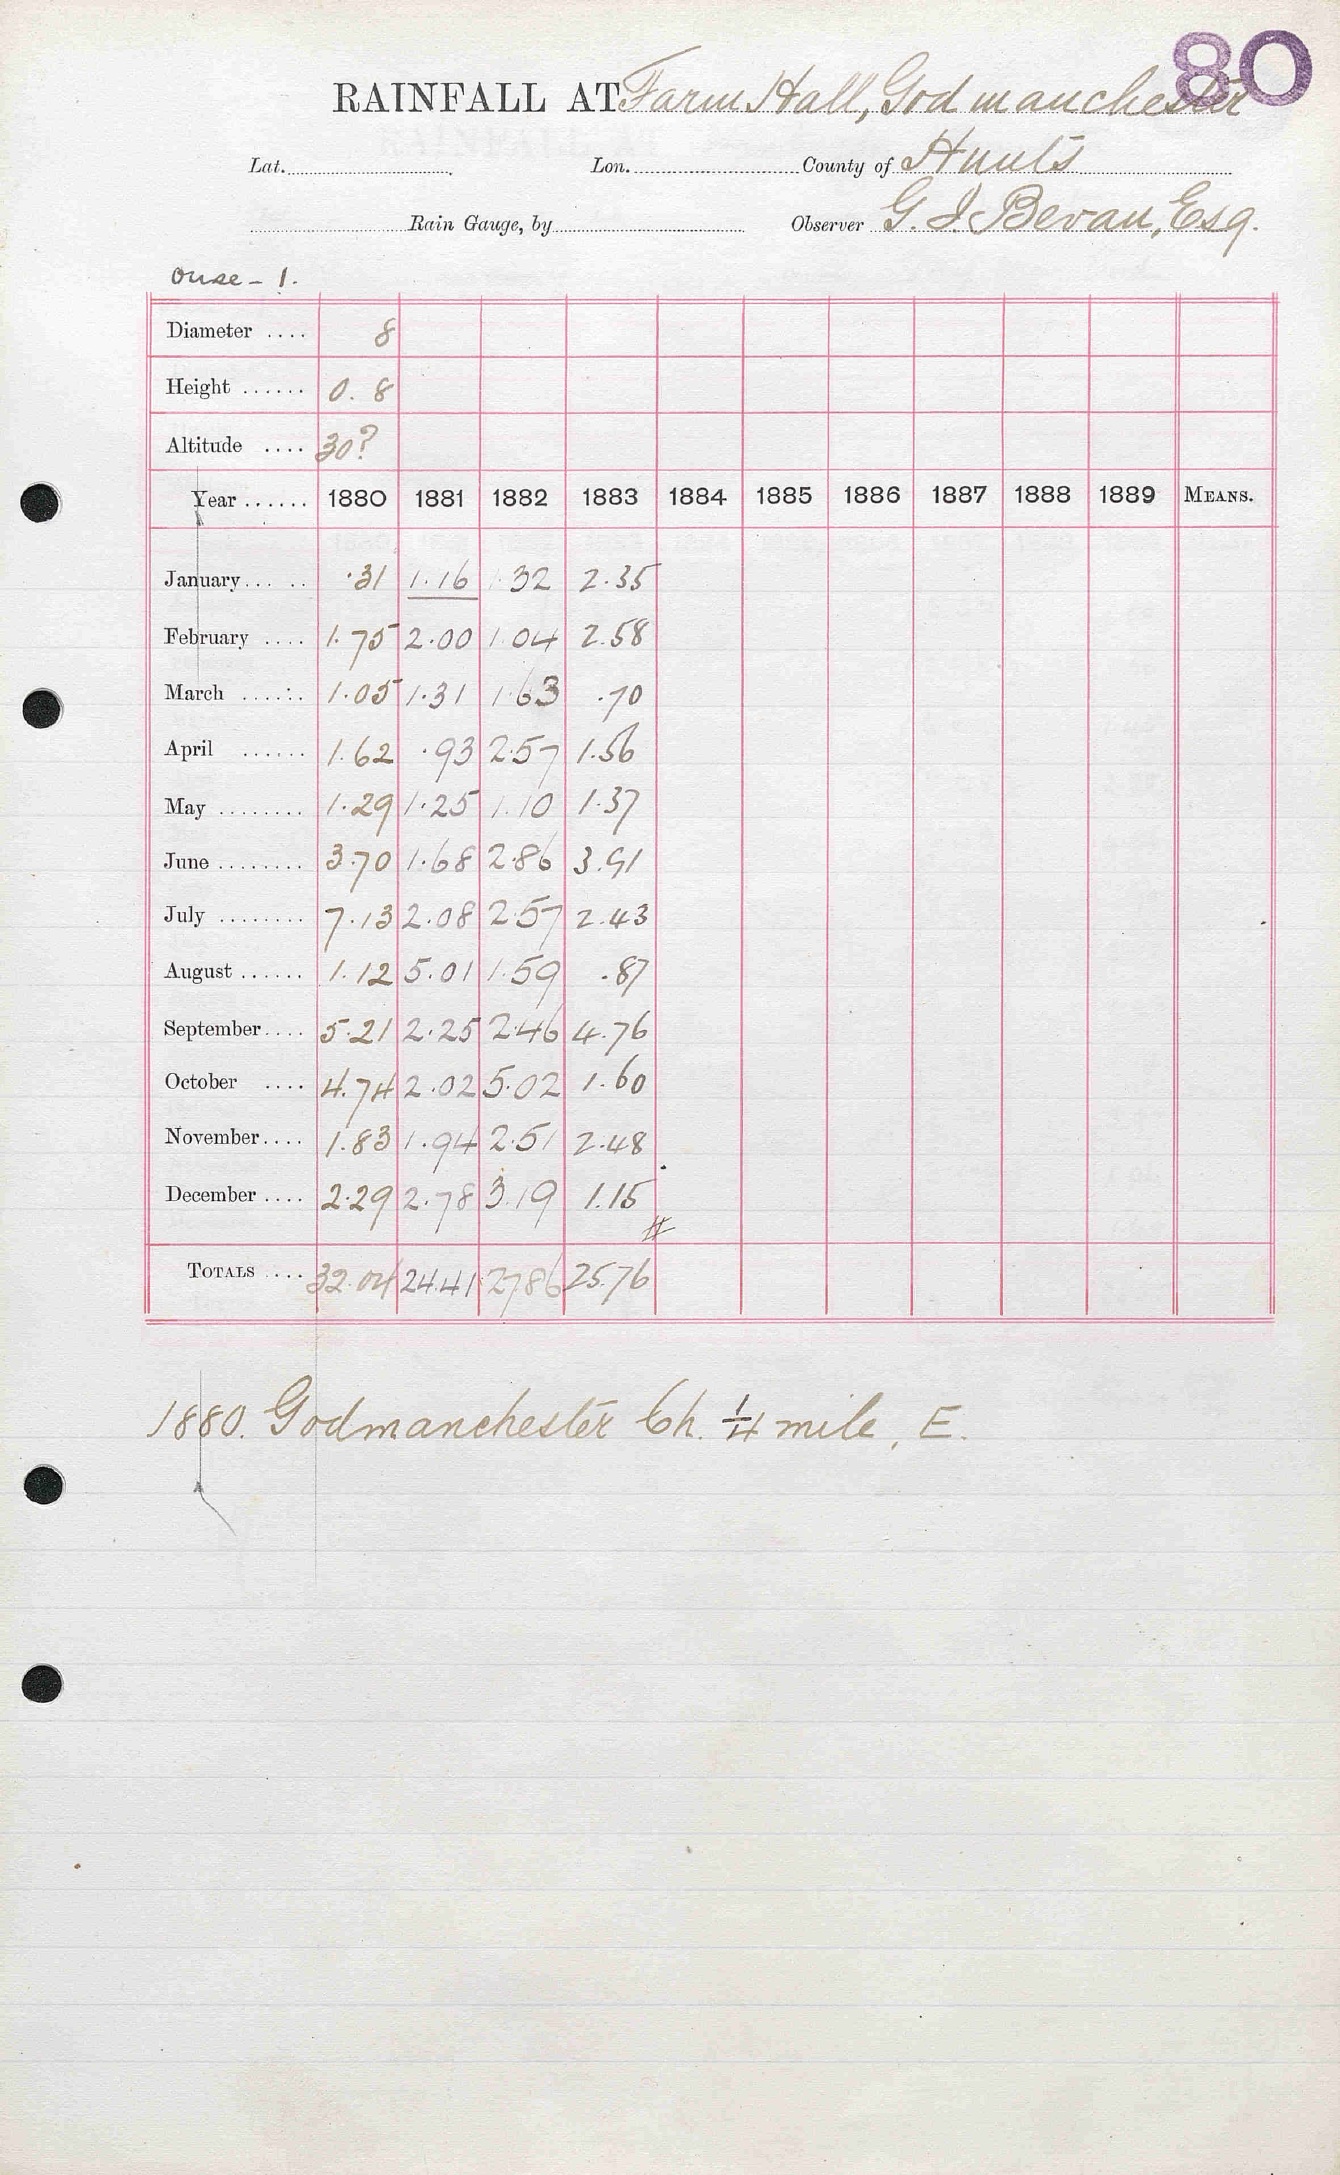 80
RAINFALL AT Farm Hall, Godmanchester
Lat. Lon. County of Hunts
Rain Gauge, by Observer G. J. Bevan, Esq.
Ouse - 1.
Diameter .... 8
Height ...... 0. 8
Altitude .... 30?
Year ...... 1880 1881 1882 1883 1884 1885 1886 1887 1888 1889 MEANS.
January.... .31 1.16 1.32 2.35
February .... 1.75 2.00 1.04 2.58
March ...... 1.05 1.31 1.63 .70
April ...... 1.62 .93 2.57 1.56
May ........ 1.29 1.25 1.10 1.37
June ........ 3.70 1.68 2.86 3.91
July ........ 7.13 2.08 2.57 2.43
August ...... 1.12 5.01 1.59 .87
September.... 5.21 2.25 2.46 4.76
October .... 4.74 2.02 5.02 1.60
November.... 1.83 1.94 2.51 2.48
December .... 2.29 2.78 3.19 1.15
TOTALS .... 32.04 24.41 27.86 25.76
1880. Godmanchester Ch. 1/4 mile, E.